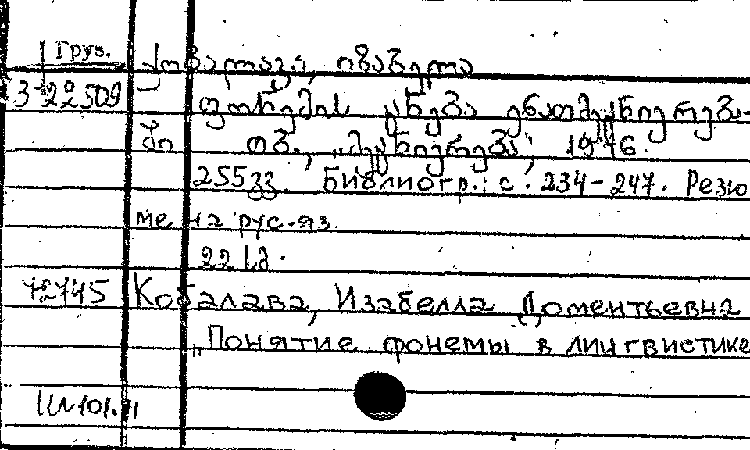 Груз.
ქობალავა, იზაბელა
3-22509
ფონემის ცნება ენათმეცნიერება-
ში თბ., „მეცნიერება“, 1976.
255 გვ. Библиогр.: с. 234-247. Резю
ме на рус. яз.
22 სმ.
72745
Кобалава, Изабелла Доментьевна
„Понятие фонемы в лингвистике